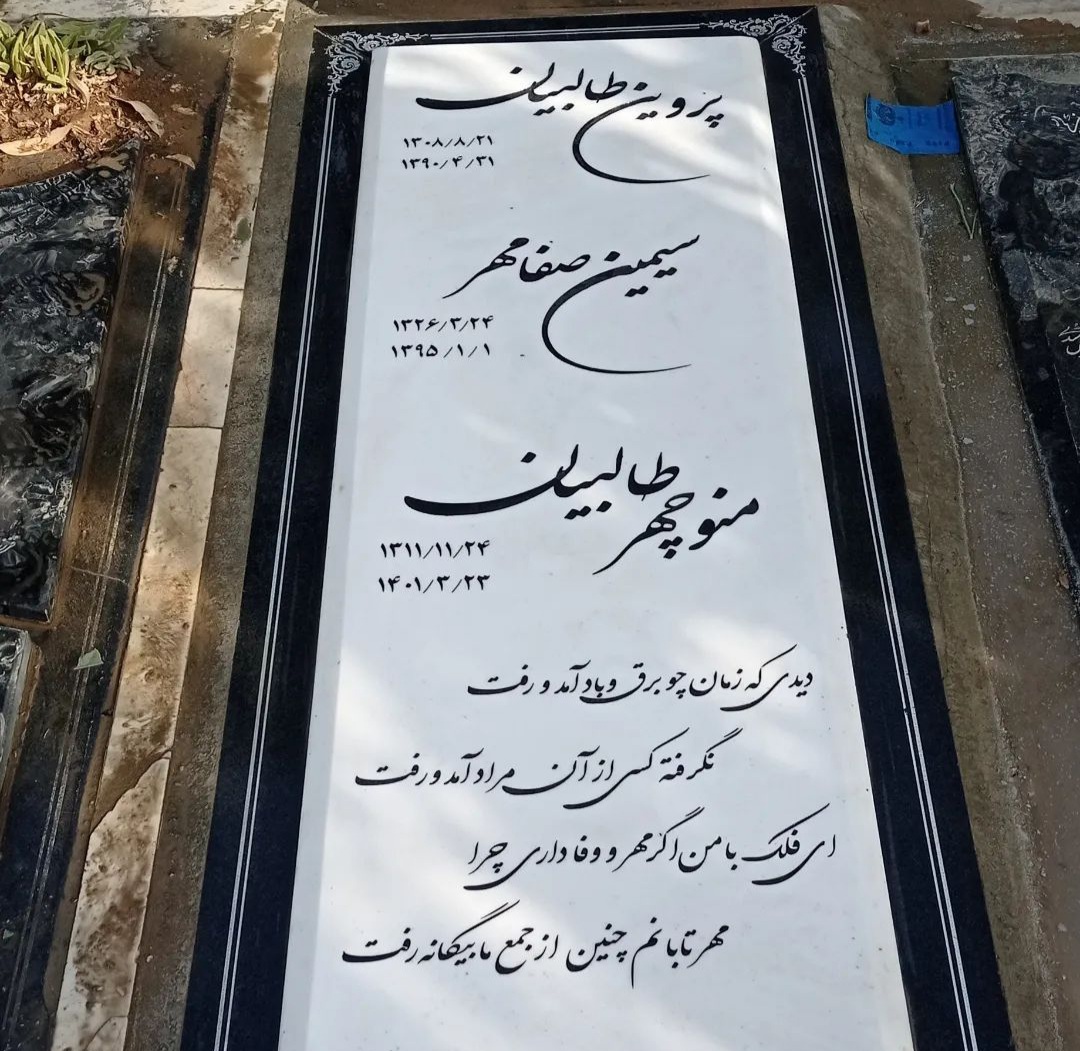 پروین طالبیان
۱۳۰۸/۸/۲۱
۱۳۹۰/۴/۳۱
سیمین صفامهر
۱۳۲۶/۳/۲۴
۱۳۹۵/۱/۱
منوچهر طالبیان
۱۳۱۱/۱۱/۲۴
۱۴۰۱/۳/۲۳
دیدی که زمان چو برق و باد آمد و رفت
نگرفته کسی از آن مراد آمد و رفت
ای فلک با من اگر مهر و وفا داری چرا
مهر تابانم چنین از جمع ما بیگانه رفت